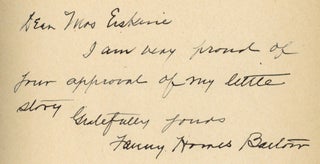 Dear Mrs Erskine
I am very proud of
your approval of my little
story
Gratefully yours
Fanny Homes Bartow